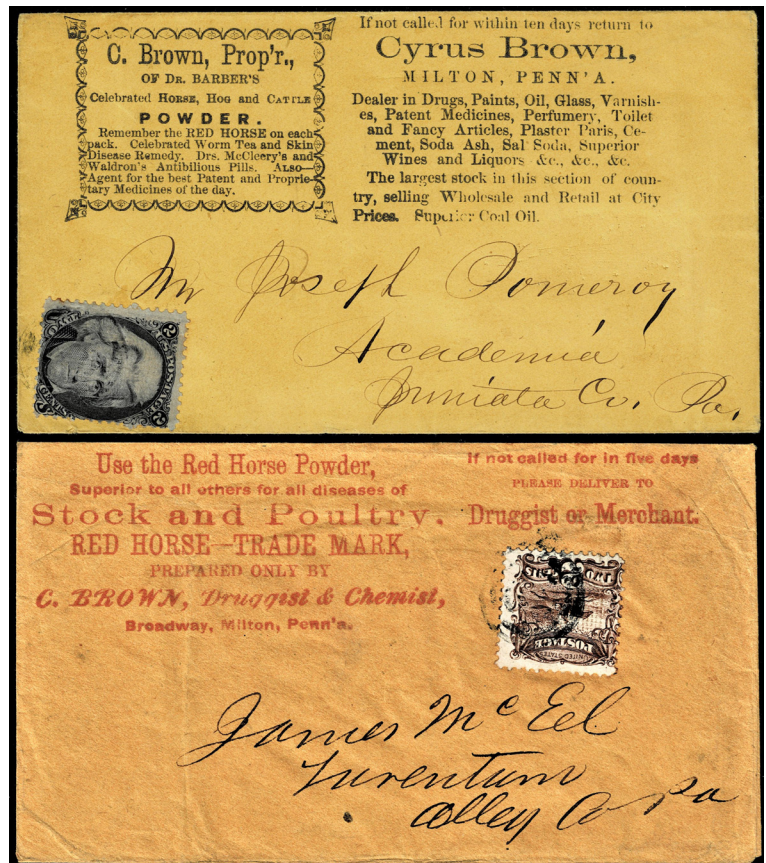 C. Brown, Prop'r.,
OF DR. BARBER'S
Celebrated HORSE, HOG and CATTLE
POWDER.
Remember the RED HORSE on each
pack. Celebrated Worm Tea and Skin
Disease Remedy. Drs. McCleery's and
Waldron's Antibilious Pills. ALSO—
Agent for the best Patent and Proprie-
tary Medicines of the day.
If not called for within ten days return to
Cyrus Brown,
MILTON, PENN'A.
Dealer in Drugs, Paints, Oil, Glass, Varnish-
es, Patent Medicines, Perfumery, Toilet
and Fancy Articles, Plaster Paris, Ce-
ment, Soda Ash, Sal Soda, Superior
Wines and Liquors &c., &c., &c.
The largest stock in this section of coun-
try, selling Wholesale and Retail at City
Prices. Superior Coal Oil.
Mr Joseph Pomeroy
Academia
Juniata Co. Pa.
U.S. POSTAGE
Use the Red Horse Powder,
Superior to all others for all diseases of
Stock and Poultry.
RED HORSE—TRADE MARK,
PREPARED ONLY BY
C. BROWN, Druggist & Chemist,
Broadway, Milton, Penn'a.
If not called for in five days
PLEASE DELIVER TO
Druggist or Merchant.
UNITED STATES
POSTAGE
James Mc Eel
Turentum
Alley Co Pa